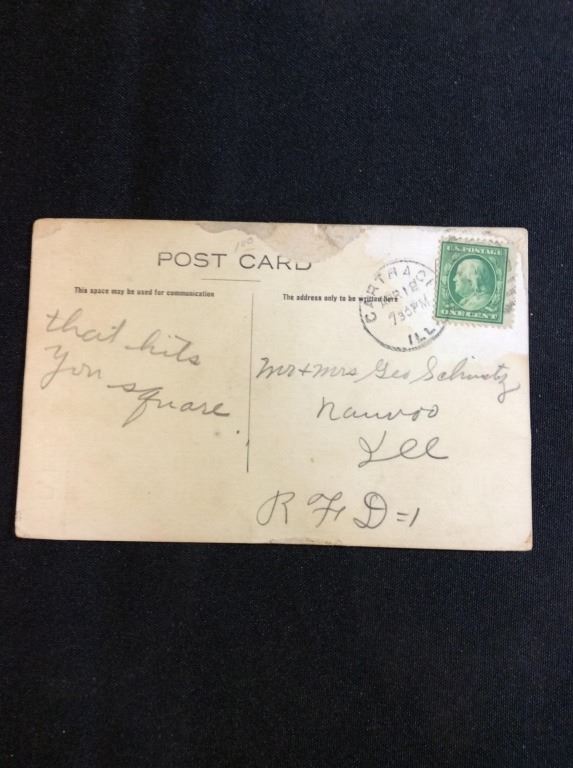 POST CARD
This space may be used for communication
The address only to be written here
U.S. POSTAGE
ONE CENT
CARTHAGE
730PM
ILL
that hits
you square.
Mr + Mrs Geo Schwartz
Nauvoo
Ill
R F D = 1